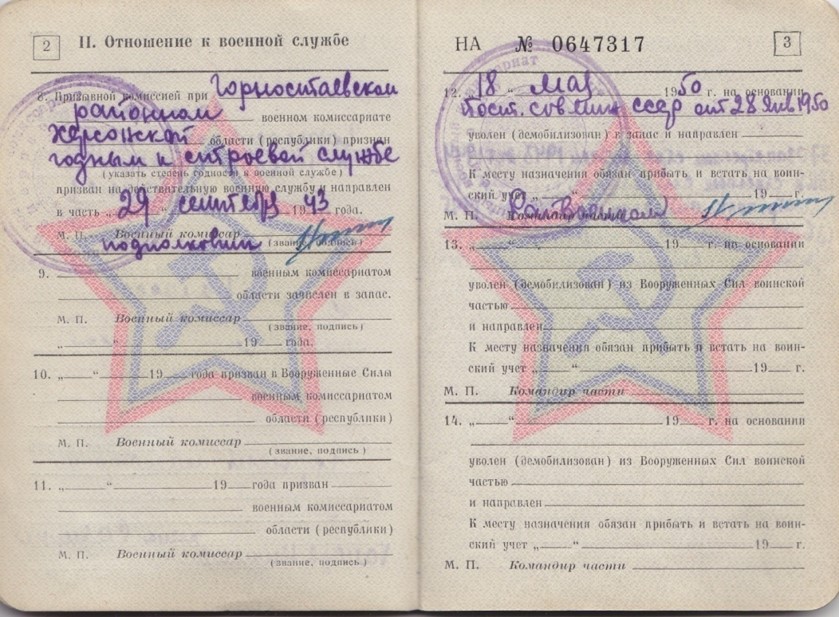 2
II. Отношение к военной службе
8. Призывной комиссией при Горностаевском
районном военном комиссариате
Херсонской области (республики) признан
годным к строевой службе
(указать степень годности к военной службе)
призван на действительную военную службу и направлен
в часть „ 29 " сентября 19 43 года.
М. П. Военный комиссар
подполковник (звание, подпись)
9. военным комиссариатом
области зачислен в запас.
М. П. Военный комиссар
(звание, подпись)
„ " 19 года.
10. „ " 19 года призван в Вооруженные Силы
военным комиссариатом
области (республики)
М. П. Военный комиссар
(звание, подпись)
11. „ " 19 года призван
военным комиссариатом
области (республики)
М. П. Военный комиссар
(звание, подпись)
НА № 0647317
3
12. „ 18 " мая 19 50 г. на основании
Пост. сов мин ссср от 28 янв 1950
уволен (демобилизован) в запас и направлен
К месту назначения обязан прибыть и встать на воин-
ский учет „ " 19 г.
М. П. Командир части
13. „ " 19 г. на основании
уволен (демобилизован) из Вооруженных Сил воинской
частью
и направлен
К месту назначения обязан прибыть и встать на воин-
ский учет „ " 19 г.
М. П. Командир части
14. „ " 19 г. на основании
уволен (демобилизован) из Вооруженных Сил воинской
частью
и направлен
К месту назначения обязан прибыть и встать на воин-
ский учет „ " 19 г.
М. П. Командир части